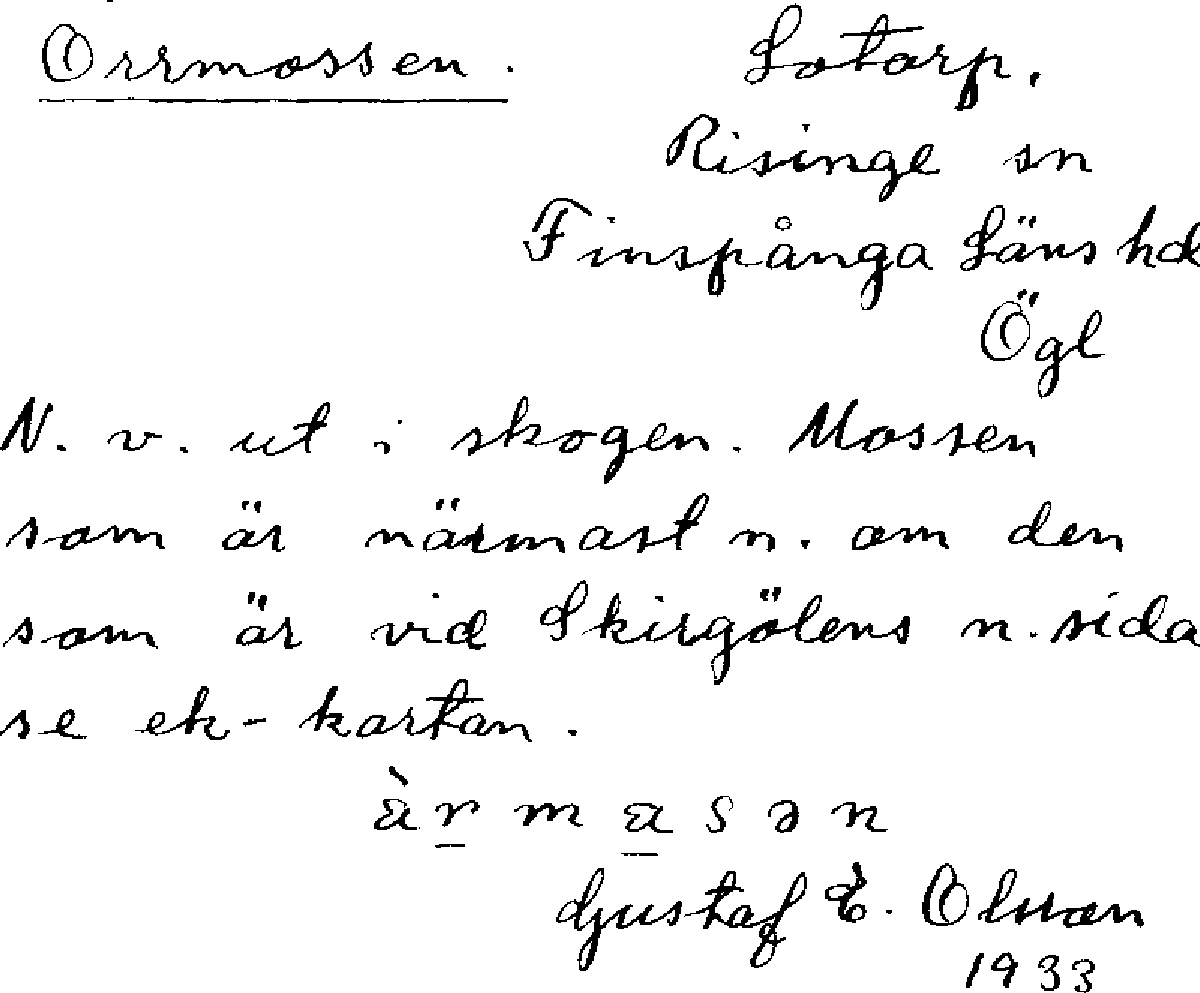 Orrmossen.
Lotorp.
Risinge sn
Finspånga Läns hd
Ögl
N. v. ut i skogen. Mossen
som är närmast n. om den
som är vid Skirgölens n. sida
se ek-kartan.
Gustaf E. Olsson
1933